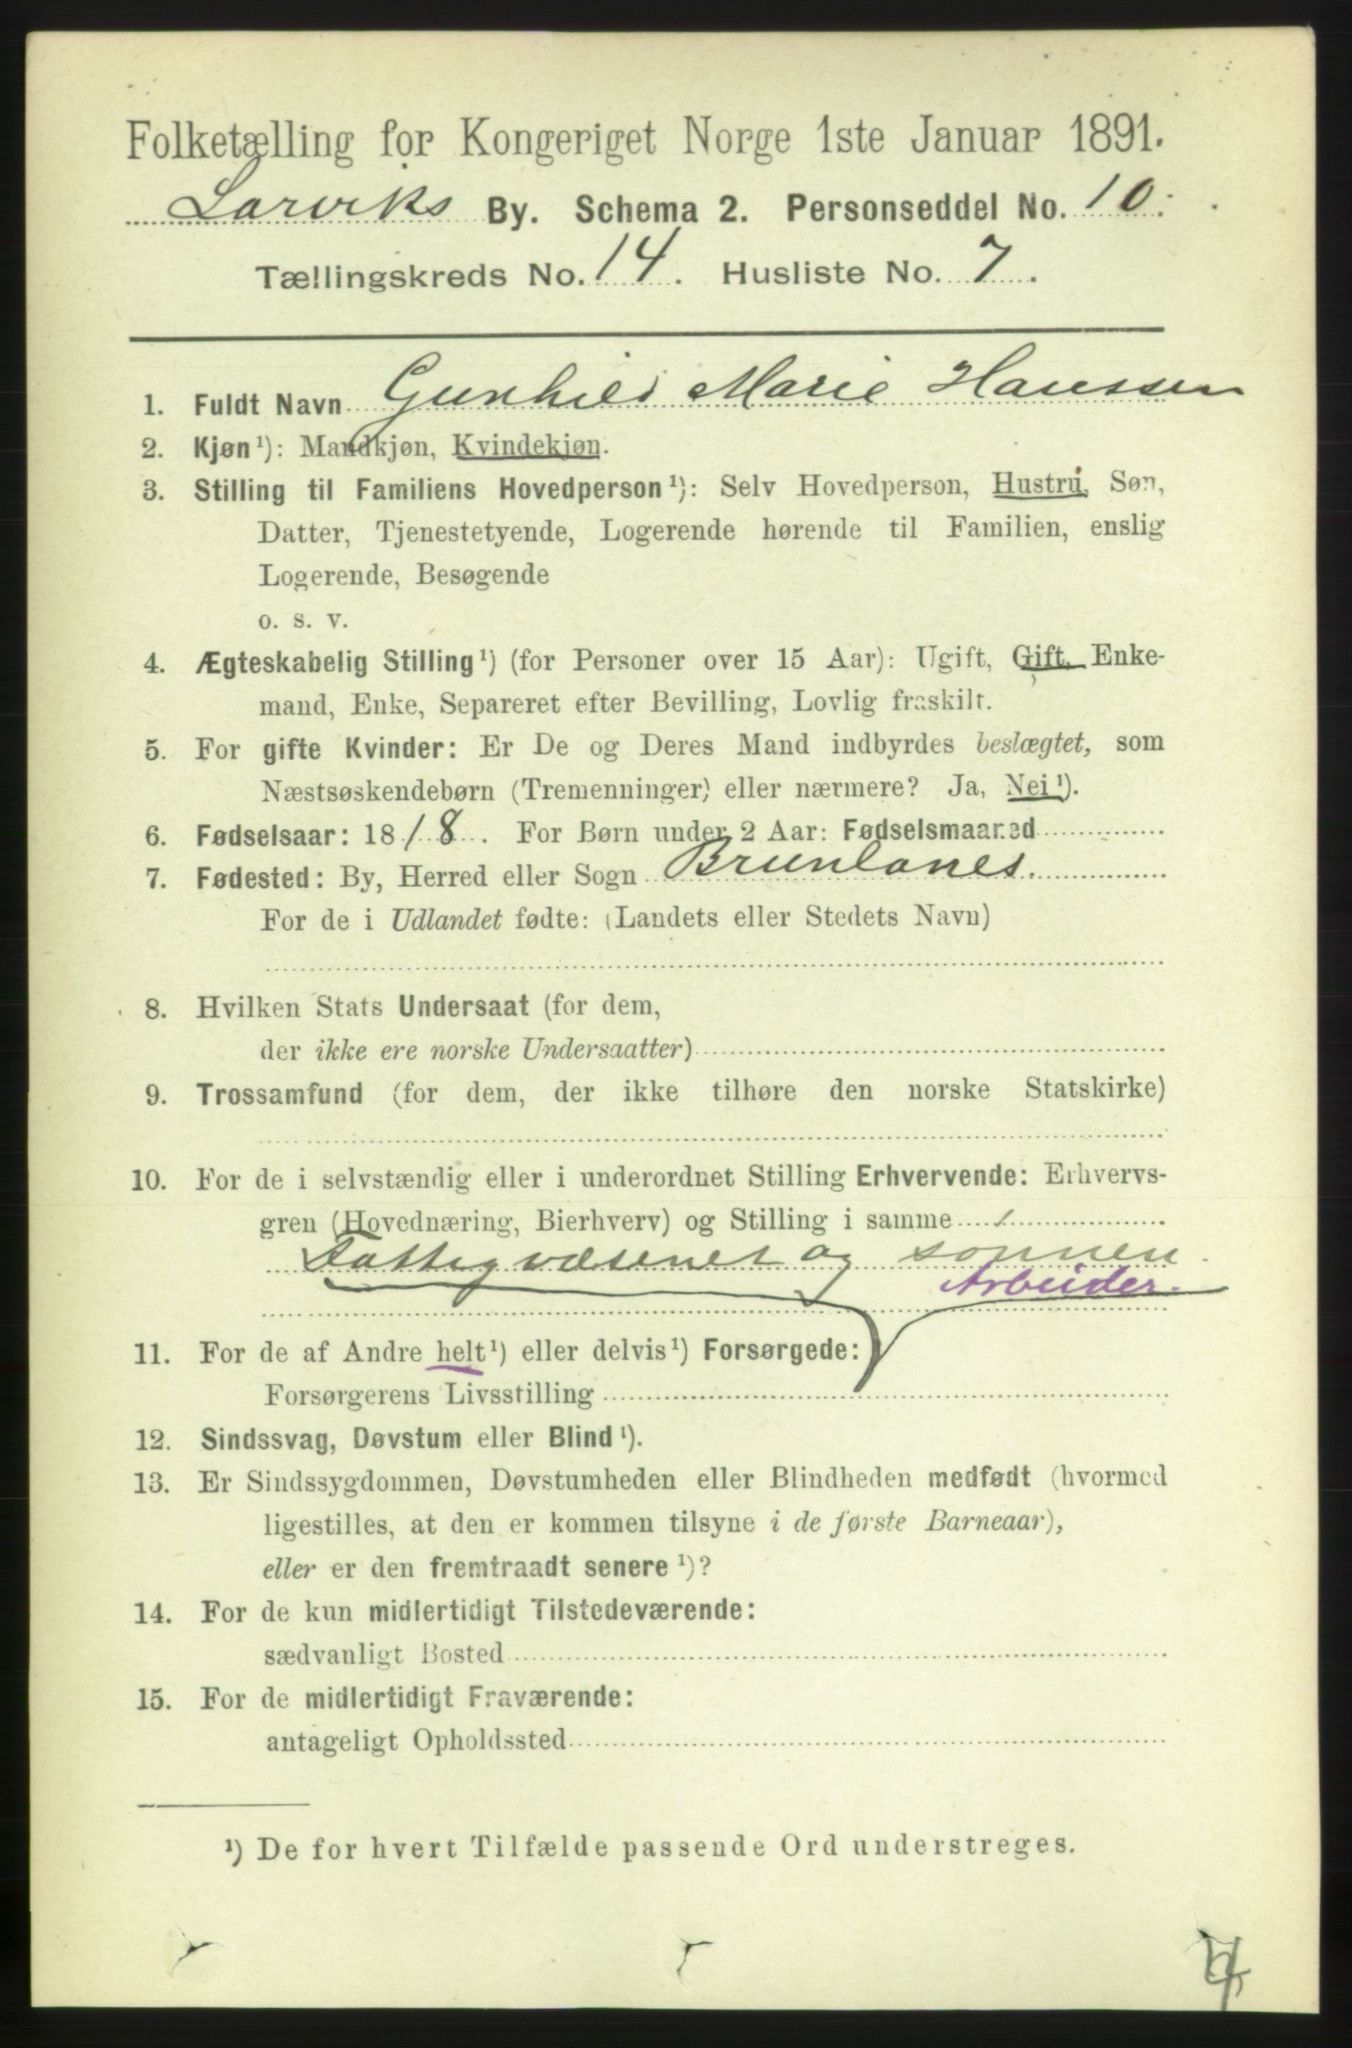 Folketælling for Kongeriget Norge 1ste Januar 1891.
Larviks By. Schema 2. Personseddel No. 10.
Tællingskreds No. 14. Husliste No. 7.
1. Fuldt Navn Gunhild Marie Hanssen
2. Kjøn¹): Mandkjøn, Kvindekjøn.
3. Stilling til Familiens Hovedperson¹): Selv Hovedperson, Hustru, Søn,
Datter, Tjenestetyende, Logerende hørende til Familien, enslig
Logerende, Besøgende
o. s. v.
4. Ægteskabelig Stilling¹) (for Personer over 15 Aar): Ugift, Gift, Enke-
mand, Enke, Separeret efter Bevilling, Lovlig fraskilt.
5. For gifte Kvinder: Er De og Deres Mand indbyrdes beslægtet, som
Næstsøskendebørn (Tremenninger) eller nærmere? Ja, Nei¹).
6. Fødselsaar: 1818. For Børn under 2 Aar: Fødselsmaaned
7. Fødested: By, Herred eller Sogn Brunlanes.
For de i Udlandet fødte: (Landets eller Stedets Navn)
8. Hvilken Stats Undersaat (for dem,
der ikke ere norske Undersaatter)
9. Trossamfund (for dem, der ikke tilhøre den norske Statskirke)
10. For de i selvstændig eller i underordnet Stilling Erhvervende: Erhvervs-
gren (Hovednæring, Bierhverv) og Stilling i samme
Fattigvæsenet og sønnen
Arbeider.
11. For de af Andre helt¹) eller delvis¹) Forsørgede:
Forsørgerens Livsstilling
12. Sindssvag, Døvstum eller Blind¹).
13. Er Sindssygdommen, Døvstumheden eller Blindheden medfødt (hvormed
ligestilles, at den er kommen tilsyne i de første Barneaar),
eller er den fremtraadt senere¹)?
14. For de kun midlertidigt Tilstedeværende:
sædvanligt Bosted
15. For de midlertidigt Fraværende:
antageligt Opholdssted
¹) De for hvert Tilfælde passende Ord understreges.